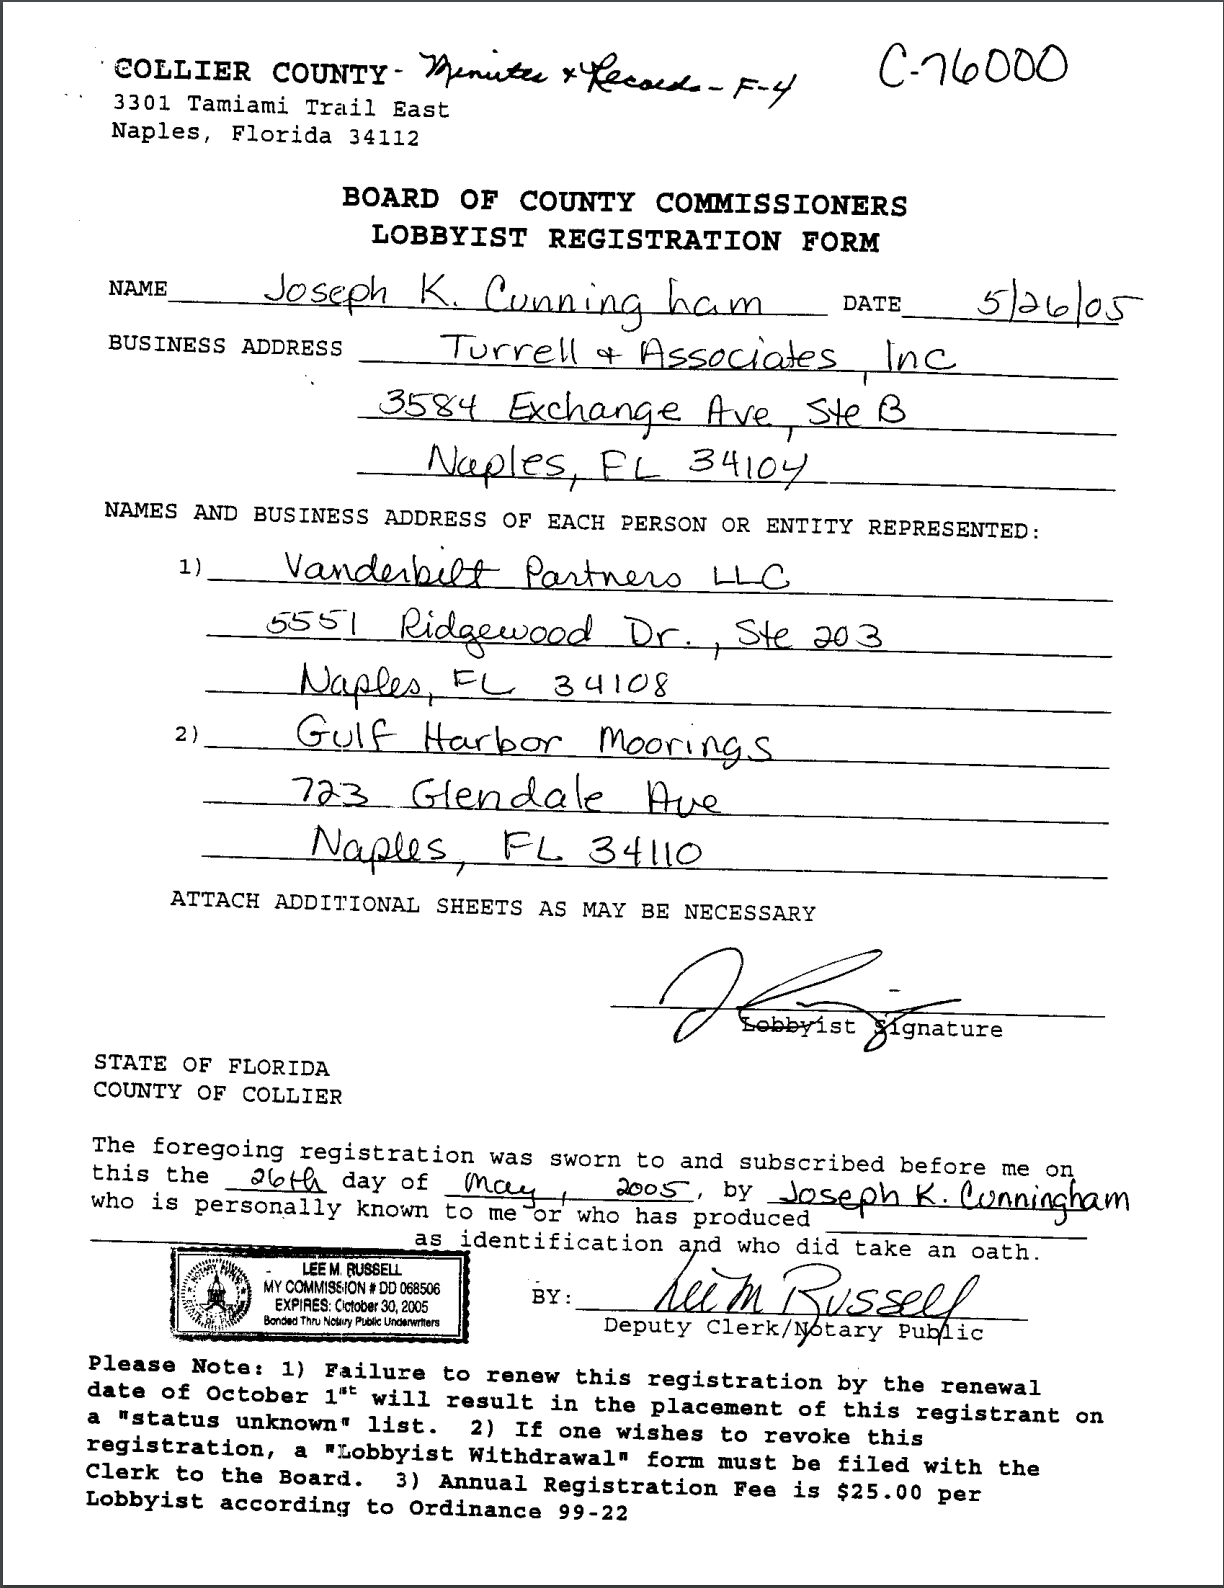 COLLIER COUNTY - Minutes & Records - F-4
C-76000
3301 Tamiami Trail East
Naples, Florida 34112
BOARD OF COUNTY COMMISSIONERS
LOBBYIST REGISTRATION FORM
NAME Joseph K. Cunningham DATE 5/26/05
BUSINESS ADDRESS Turrell & Associates, Inc
3584 Exchange Ave, Ste B
Naples, FL 34104
NAMES AND BUSINESS ADDRESS OF EACH PERSON OR ENTITY REPRESENTED:
1) Vanderbilt Partners LLC
5551 Ridgewood Dr., Ste 203
Naples, FL 34108
2) Gulf Harbor Moorings
723 Glendale Ave
Naples, FL 34110
ATTACH ADDITIONAL SHEETS AS MAY BE NECESSARY
Lobbyist Signature
STATE OF FLORIDA
COUNTY OF COLLIER
The foregoing registration was sworn to and subscribed before me on
this the 26th day of May, 2005, by Joseph K. Cunningham
who is personally known to me or who has produced
as identification and who did take an oath.
LEE M. RUSSELL
MY COMMISSION # DD 068506
EXPIRES: October 30, 2005
Bonded Thru Notary Public Underwriters
BY: Lee M Russell
Deputy Clerk/Notary Public
Please Note: 1) Failure to renew this registration by the renewal
date of October 1st will result in the placement of this registrant on
a "status unknown" list. 2) If one wishes to revoke this
registration, a "Lobbyist Withdrawal" form must be filed with the
Clerk to the Board. 3) Annual Registration Fee is $25.00 per
Lobbyist according to Ordinance 99-22